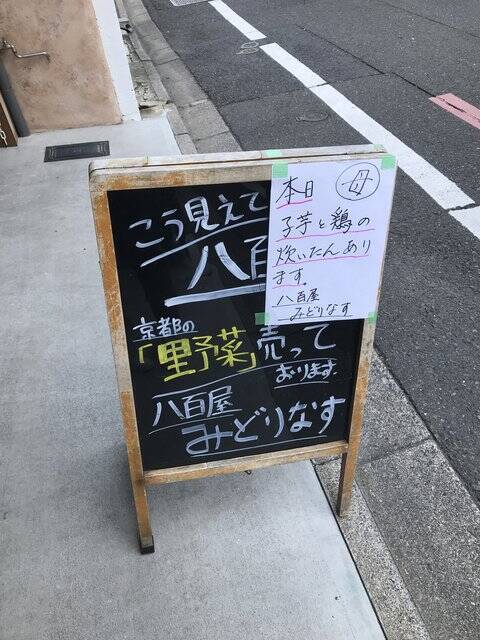 こう見えて
八百
京都の
「里野菜」売って
おります。
八百屋
みどりなす
母
本日
子芋と鶏の
炊いたんあり
ます。
八百屋
みどりなす